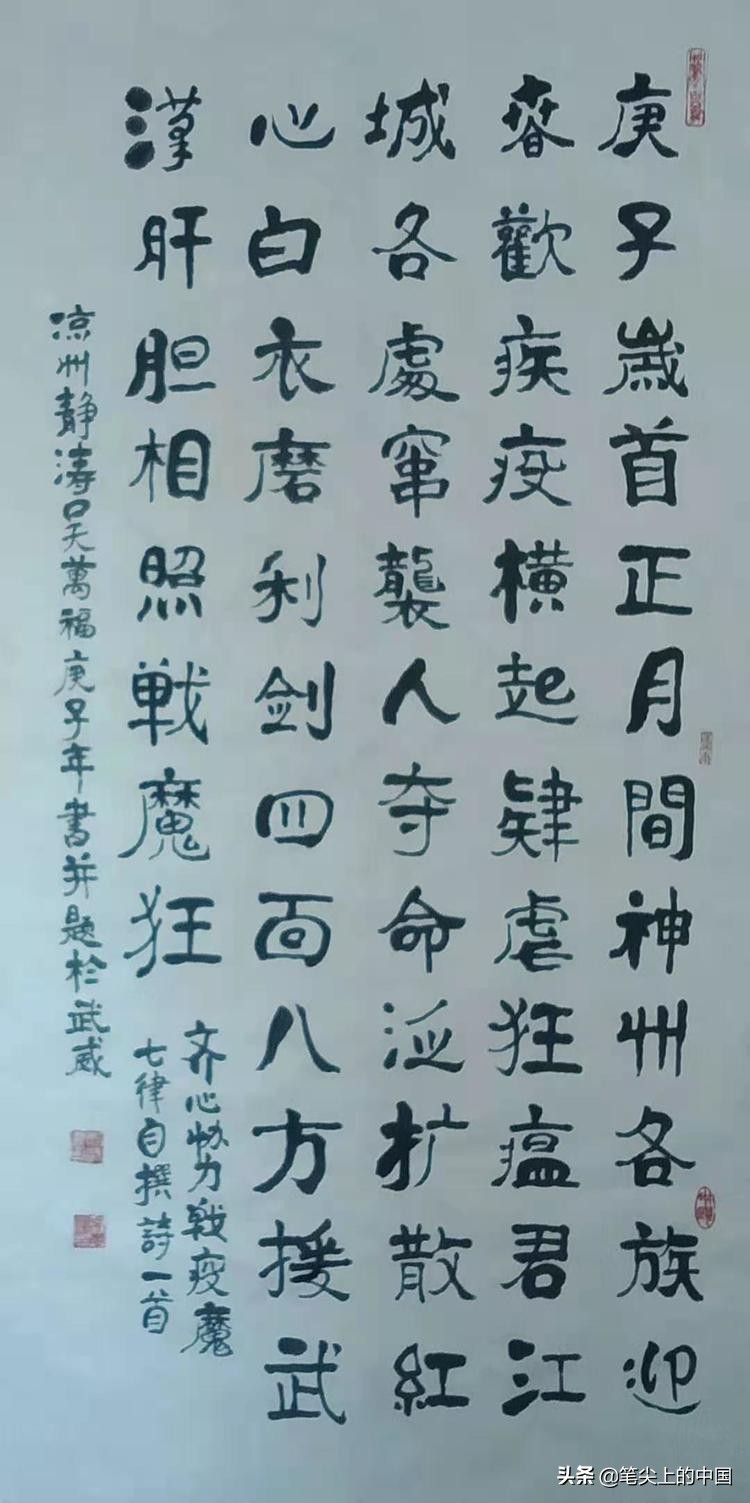 庚子歲首正月間神州各族迎
春歡疾疫横起肆虐狂瘟君江
城各處窜襲人夺命泛扩散紅
心白衣磨利剑四面八方援武
漢肝胆相照戦魔狂
齐心协力戰疫魔
七律自撰詩一首
凉州静涛吴萬福庚子年書并题於武威
头条 @笔尖上的中国